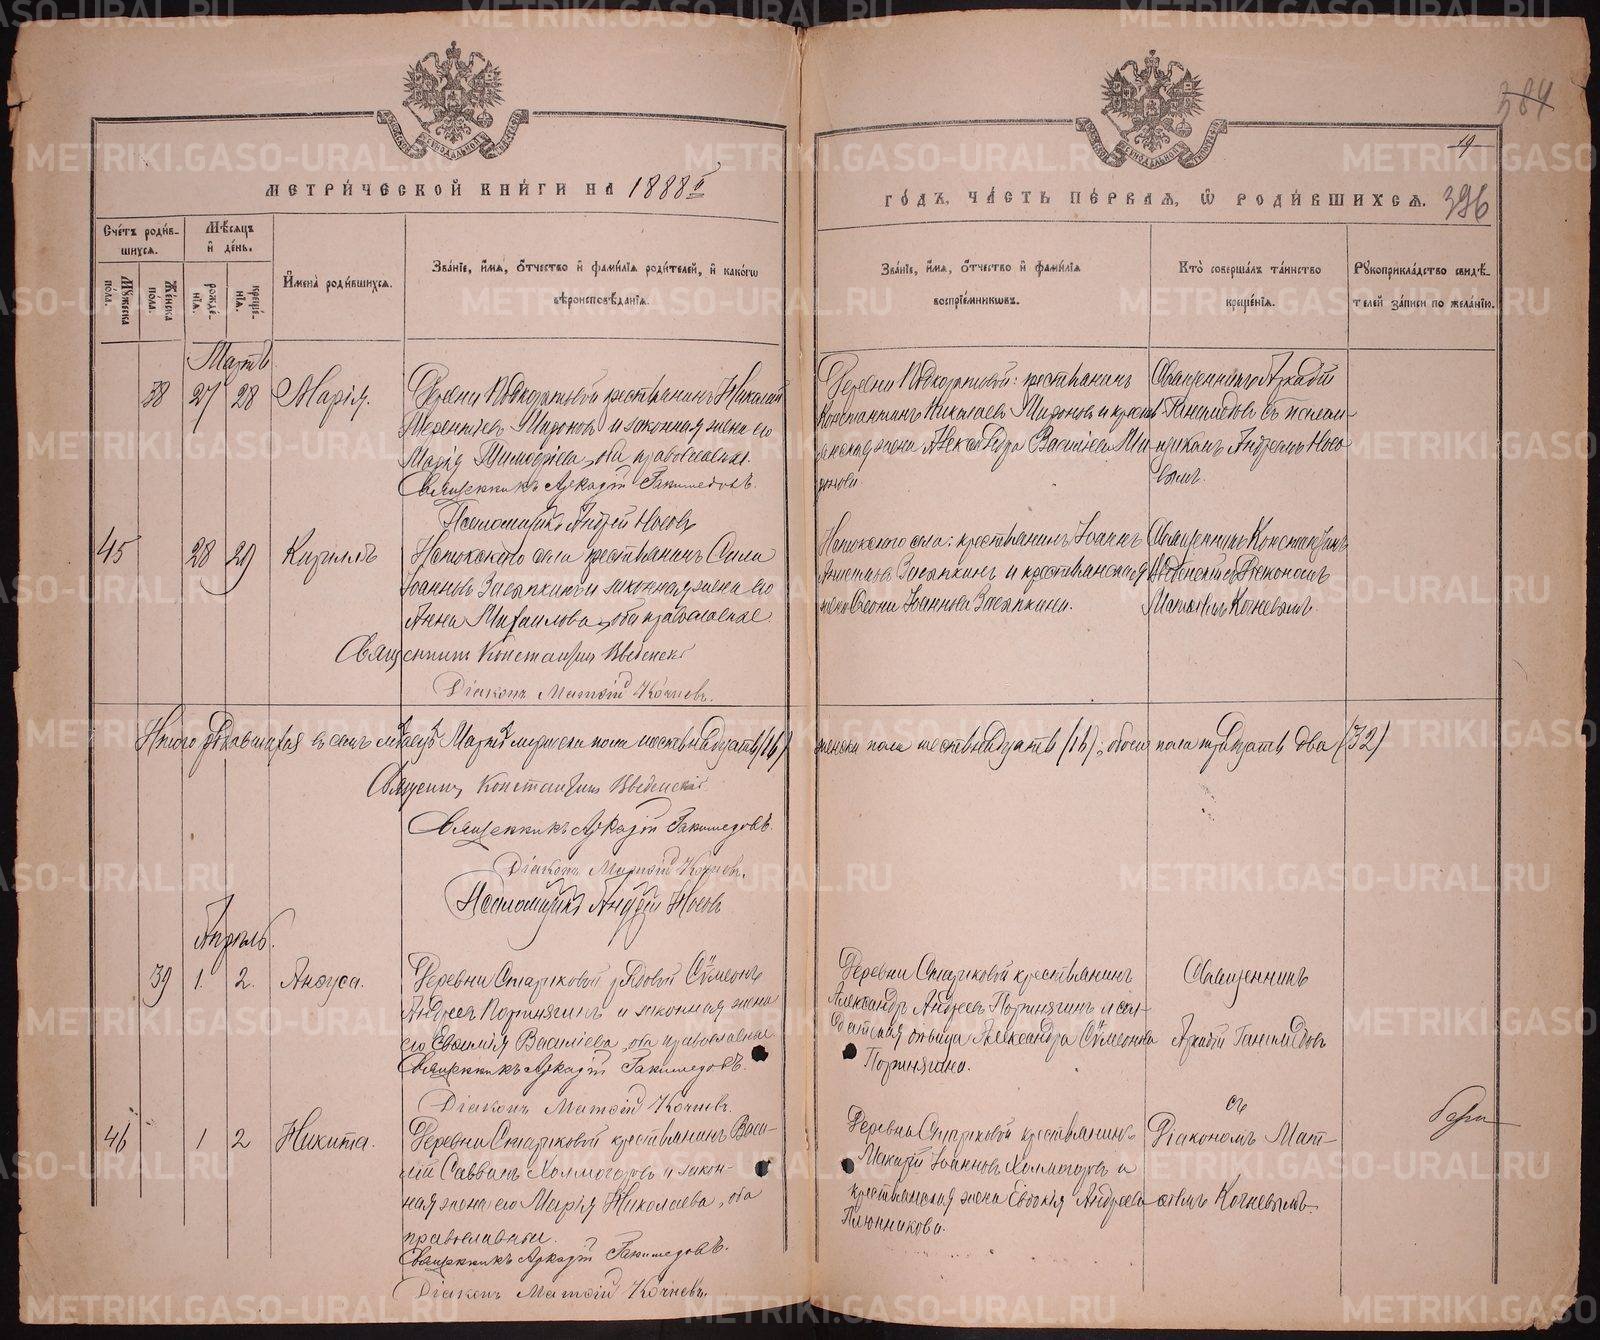 МЕТРИ́ЧЕСКОЙ КНИ́ГИ НА 1888 й
ГО́ДЪ, ЧА́СТЬ ПЕ́РВАЯ, Ѡ РОДИ́ВШИХСЯ.
384
19
396
Сче́тъ роди́в-
шихся.
Мѣ́сяцъ
и́ де́нь.
Му́жеска
по́ла.
Же́нска
по́ла.
рожде́-
нїя.
креще́-
нїя.
Имена̀ роди́вшихся.
Зва́нїе, и́мя, о́тчество и́ фами́лїя роди́телей, и́ како́гѡ
вѣроисповѣ́данїя.
Зва́нїе, и́мя, о́тчество и́ фами́лїя
воспрїе́мниковъ.
Кто̀ соверша́лъ та́инство
креще́нїя.
Рукоприкла́дство свидѣ́-
телей за́писи по жела́нїю.
Мартъ
38 27 28 Марія.
Деревни крестьянинъ Николай
Мироновъ и законная жена его
Марія Тимофѣева, оба православные.
Священникъ Аркадій Гаккмедовъ.
Псаломщикъ Андрей Носовъ
Деревни крестьянинъ
Константинъ Николаевъ Мироновъ и кресть-
янская жена Александра Васильева Ми-
ронова
Священникъ Аркадій
съ псалом-
щикомъ Андреемъ Носо-
вымъ.
45 28 29 Кириллъ
села крестьянинъ Сила
Іоанновъ Засыпкинъ и законная жена его
Анна Михаилова, оба православные.
Священникъ Константинъ Введенскій
Діаконъ Матѳій Кочневъ.
села: крестьянинъ Іоаннъ
Засыпкинъ и крестьянская
жена Іоаннова Засыпкина.
Священникъ Константинъ
Введенскій съ Діакономъ
Матѳіемъ Кочневымъ.
Итого родившихся въ семъ мѣсяцѣ Мартѣ мужеска пола шестьнадцать (16)
женска пола шестьнадцать (16), обоего пола тридцать два (32)
Священникъ Константинъ Введенскій
Священникъ Аркадій
Діаконъ Матѳій Кочневъ.
Псаломщикъ Андрей Носовъ
Апрѣль.
39 1. 2. Анѳуса.
Деревни Стариковой рядовой Сѵмеонъ
Андреевъ Портнягинъ и законная жена
его Евѳимія Василіева, оба православные
Священникъ Аркадій
Діаконъ Матѳій Кочневъ.
Деревни Стариковой крестьянинъ
Александръ Андреевъ Портнягинъ и сол-
датская дѣвица Александра Сѵмеонова
Портнягина.
Священникъ
Аркадій
съ
46 1 2 Никита.
Деревни Стариковой крестьянинъ Васи-
лій Саввинъ Холмогоровъ и закон-
ная жена его Марія Николаева, оба
православные.
Священникъ Аркадій
Діаконъ Матѳій Кочневъ.
Деревни Стариковой крестьянинъ
Макарій Іоанновъ Холмогоровъ и
крестьянская жена Евдокія Андреева
Плюнникова.
Діакономъ Мат-
ѳіемъ Кочневымъ.
METRIKI.GASO-URAL.RU